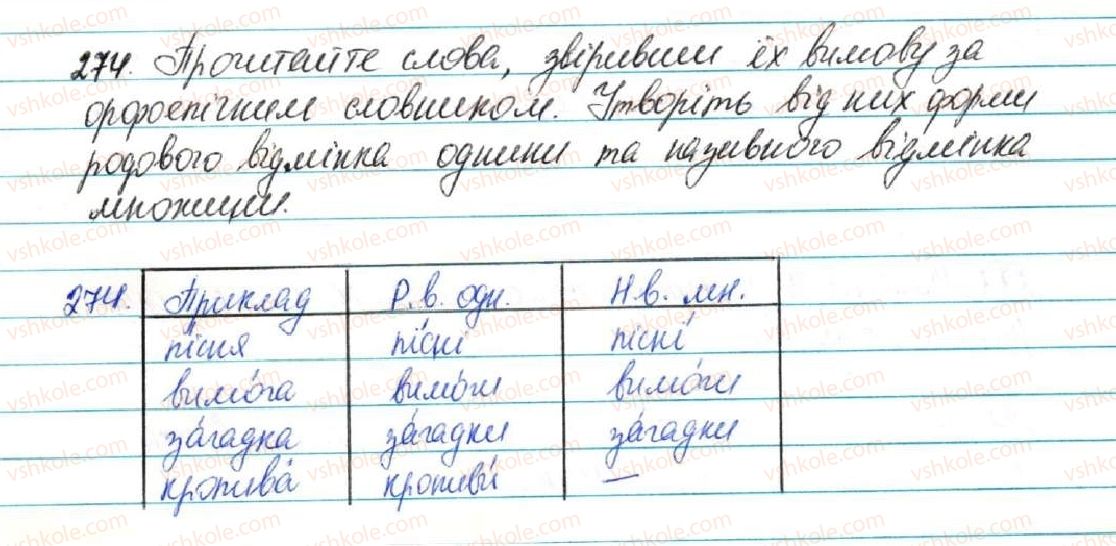 274. Прочитайте слова, звіривши їх вимову за
орфоепічним словником. Утворіть від них форми
родового відмінка однини та називного відмінка
множини.
274. Приклад Р.в. одн. Н.в. мн.
пі́сня пі́сні пісні́
вимо́га вимо́ги вимо́ги
за́гадка за́гадки за́гадки
кропива́ кропиви́ —
vshkole.com